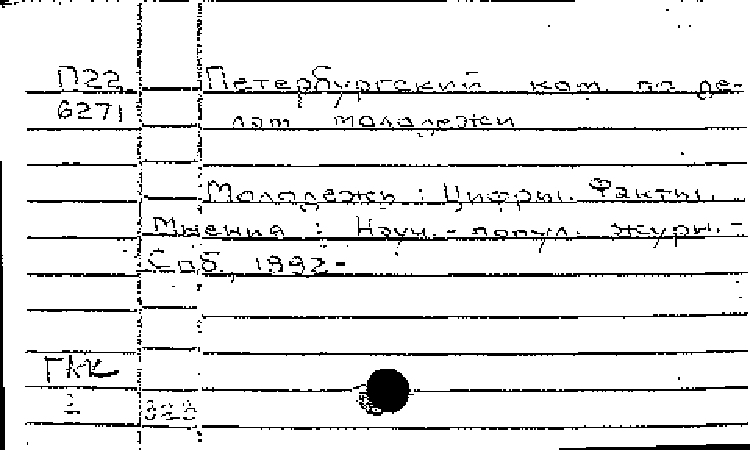 П22 Петербургский ком. по де-
6271 лам молодежи
Молодежь : Цифры. Факты.
Мнения : Науч.- попул. журн. -
Спб., 1992-
ГАК
1 323